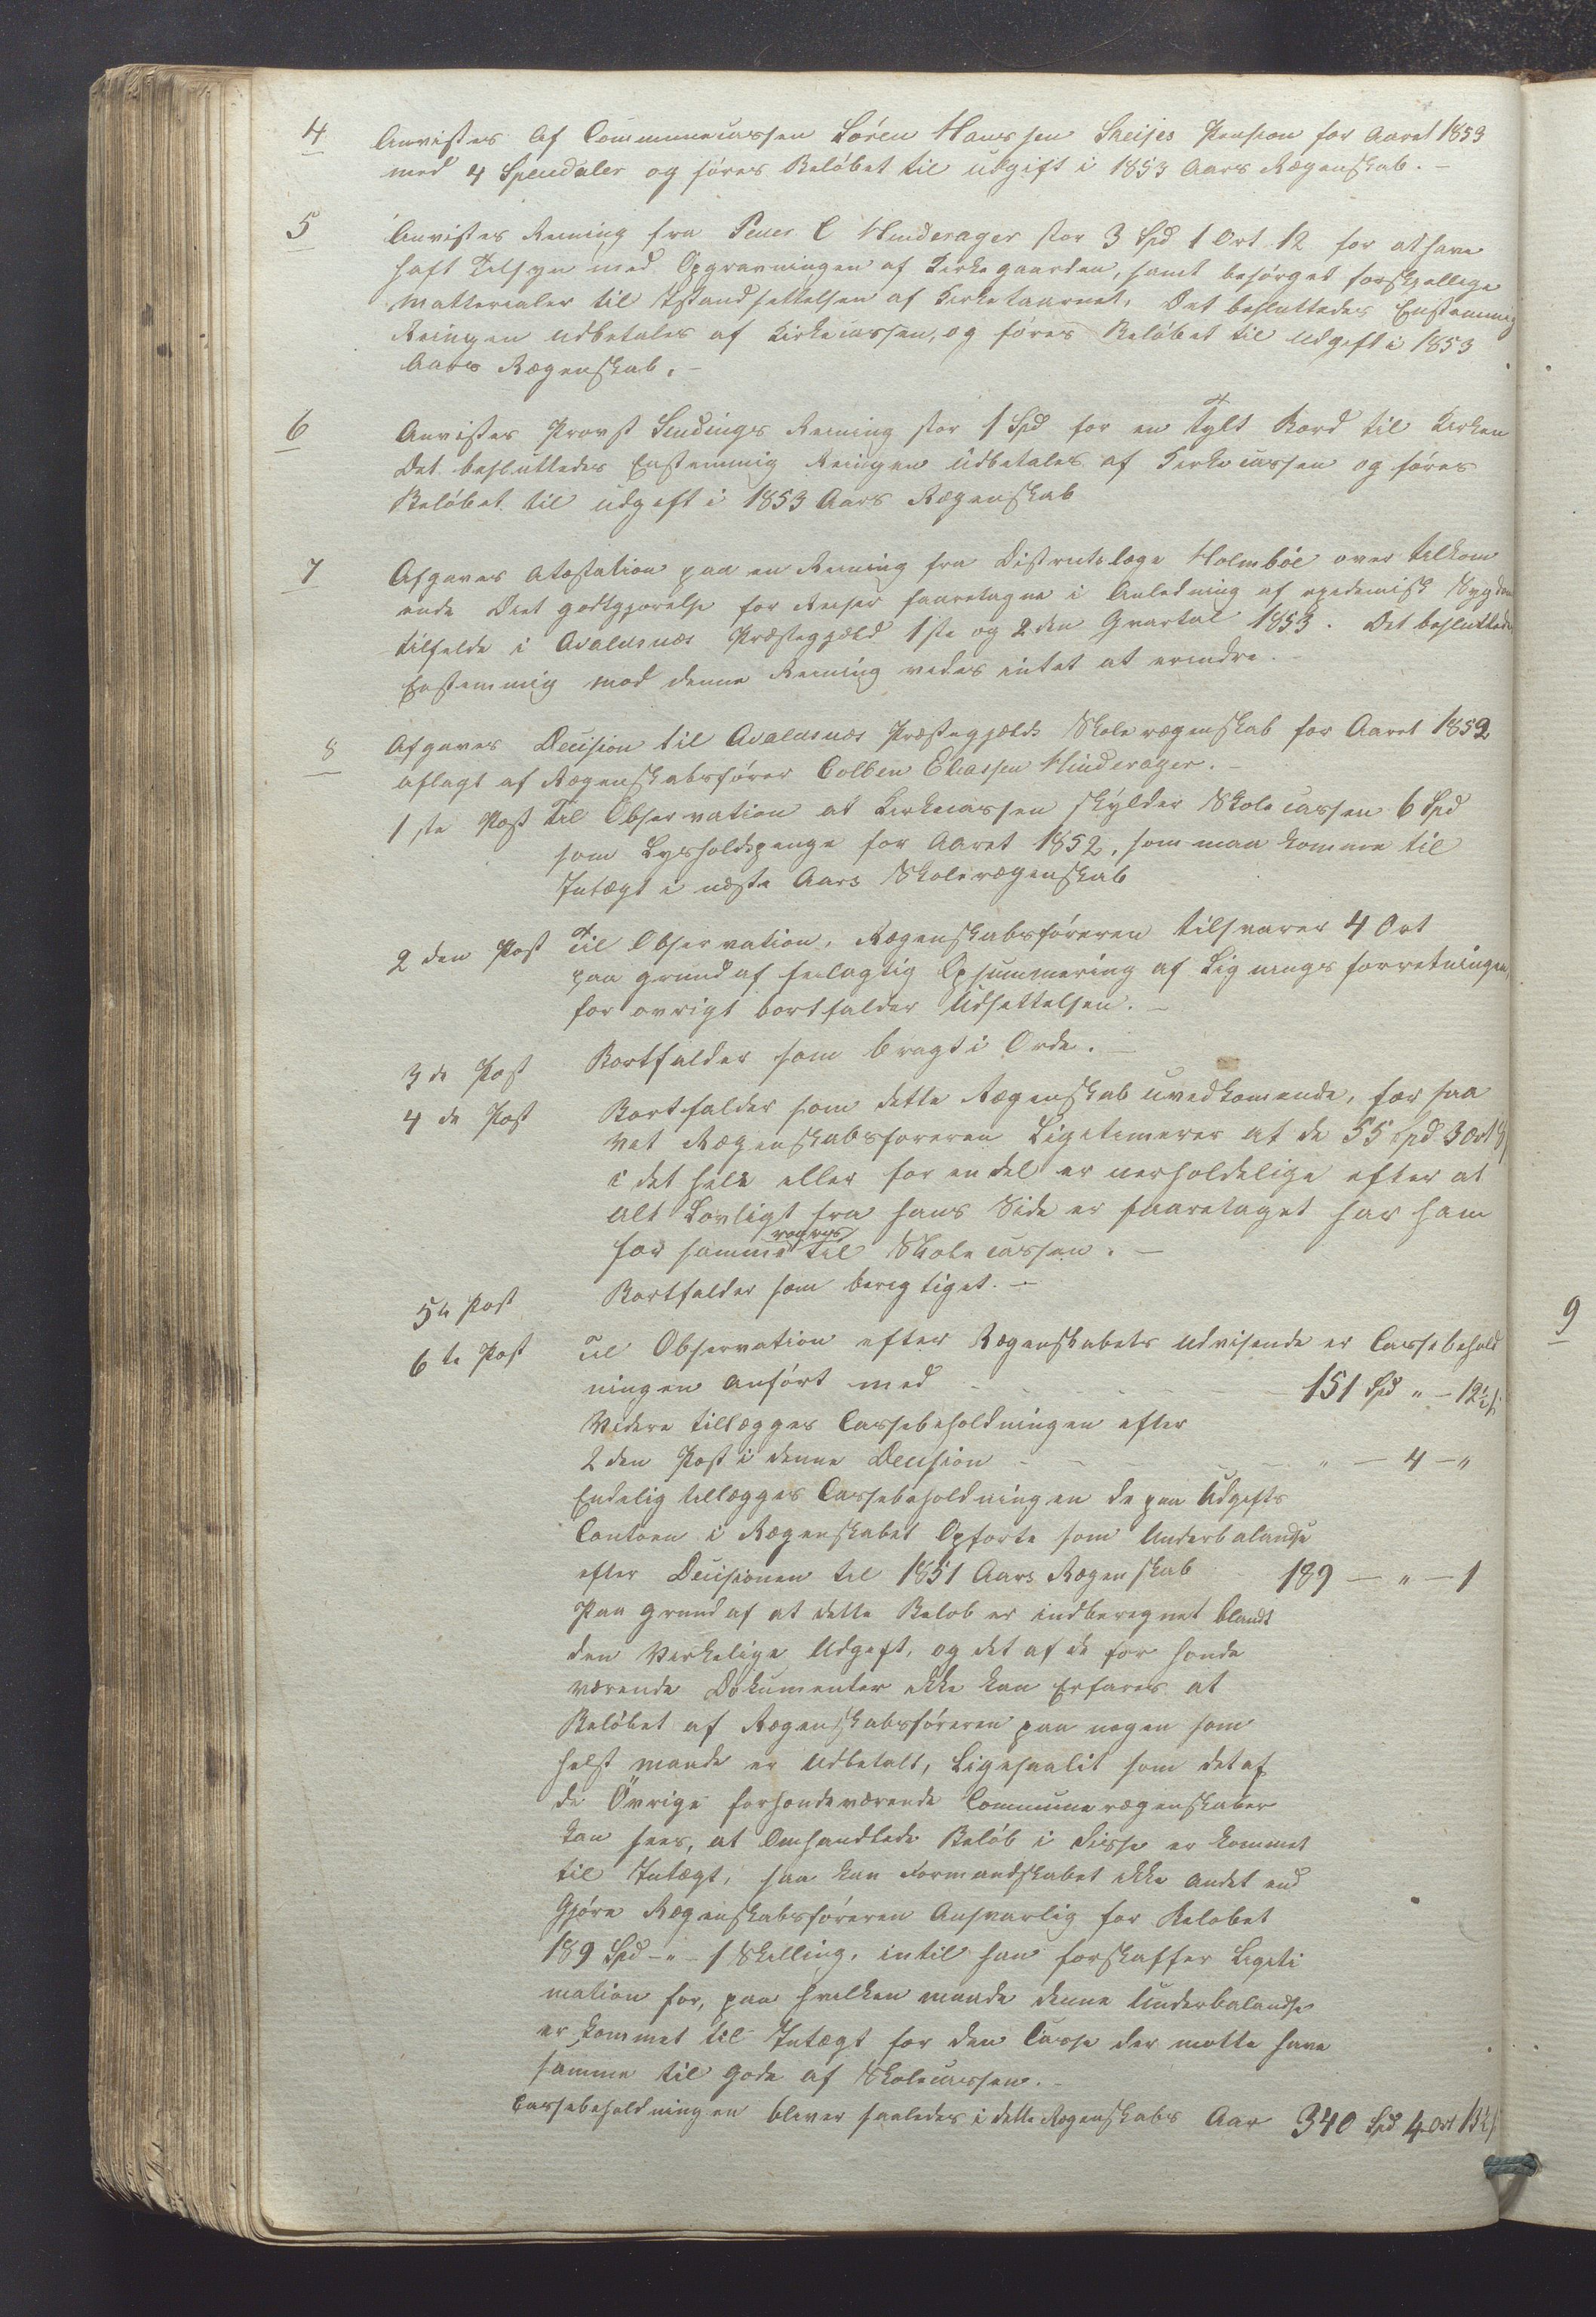 4 Anvistes af Communecassen Sören Hanssen Sneijes Pension for Aaret 1853
med 4 Speudaler og føres Beløbet til udgift i 1853 Aars Rægenskab. -
5 Anvistes Reining fra Peder E Hinderager stor 3 Spd 1 Ort 12 for at have
haft Tilsyn med Opgravningen af Kirkegaarden, samt besørget forskjellige
Matterialer til Istandsettelsen af Kirketaarnet. Det besluttedes Enstemmig
Reingen udbetales af Kirkecassen, og føres Beløbet til udgift i 1853
Aars Rægenskab. -
6 Anvistes Provst Sendings Reining stor 1 Spd for en Tylt Bord til Kirken
Det besluttedes Enstemmig Reingen udbetales af Kirkecassen og føres
Beløbet til udgift i 1853 Aars Rægenskab
7 Afgaves Atestation paa en Reining fra Distrctslæge Holmböe over tilkom
ende Diet godtgjørelse for Reiser foaretagne i Anledning af epedemisk Sygdoms
tilfelde i Avaldsnæs Præstegjeld 1ste og 2den Qvartal 1853. Det besluttedes
Enstemmig mod denne Reining vides intet at erindre. -
8 Afgaves Decision til Avaldsnæs Præstegjelds Skole rægenskab for Aaret 1852
aflagt af Rægenskabsfører Colben Eliassen Hinderager. -
1ste Post Til Observation at Kirkecassen skylder Skolecassen 6 Spd
som Lysholdspenge for Aaret 1852, som maa komme til
Intægt i næste Aars Skolerægenskab
2den Post Til Observation, Rægenskabsføreren tilsvarer 4 Ort
paa grund af feilagtig Opsummering af Ligningsforretningen,
for øvrigt bortfalder Udsettelsen. -
3de Post Bortfalder som bragt i Orde. -
4de Post Bortfalder som dette Rægenskab uvedkomende, for saa
vet Rægenskabsføreren Ligetimerer at de 55 Spd 3 Ort
i det hele eller for en del er uerholdelige efter at
alt Lovligt fra hans Side er foaretaget har ham
for samme til Skolecassen. -
5te Post Bortfalder som beregtiget. -
6te Post Til Observation efter Rægenskabets Udvisende er Cassebehold
ningen anført med - - - - 151 Spd " - 12½ s
Videre tillægges Cassebeholdningen efter
2den Post i denne Decision - - - " - 4 - "
Endelig tillægges Cassebeholdningen de paa Udgifts
Contoen i Rægenskabet Opførte som Underbalandse
efter Decisionen til 1851 Aars Rægenskab - 189 - " - 1
Paa grund af at dette Beløb er indberegnet blandt
den Virkelige Udgift, og det af de for Honde
værende Dokumenter ikke kan Erfares at
Beløbet af Rægenskabsføreren paa nogen som
helst maade er Udbetalt, Ligesaalit som det af
de Övrige forhondeværende Communerægenskaber
kan sees, at Omhandlede Beløb i disse er kommet
til Intægt, saa kan Formandskabet ikke andet end
Gjøre Rægenskabsføreren Ansvarlig for Beløbet
189 Spd - " - 1 Skilling, intil han forskaffer Legiti
mation for, paa hvilken maade denne Underbalandse
er kommet til Intægt for den Casse der motte have
samme til gode af Skolecassen. -
Cassebeholdningen bliver saaledes i dette Regenskabs Aar 340 Spd 4 Ort 13½ s
9